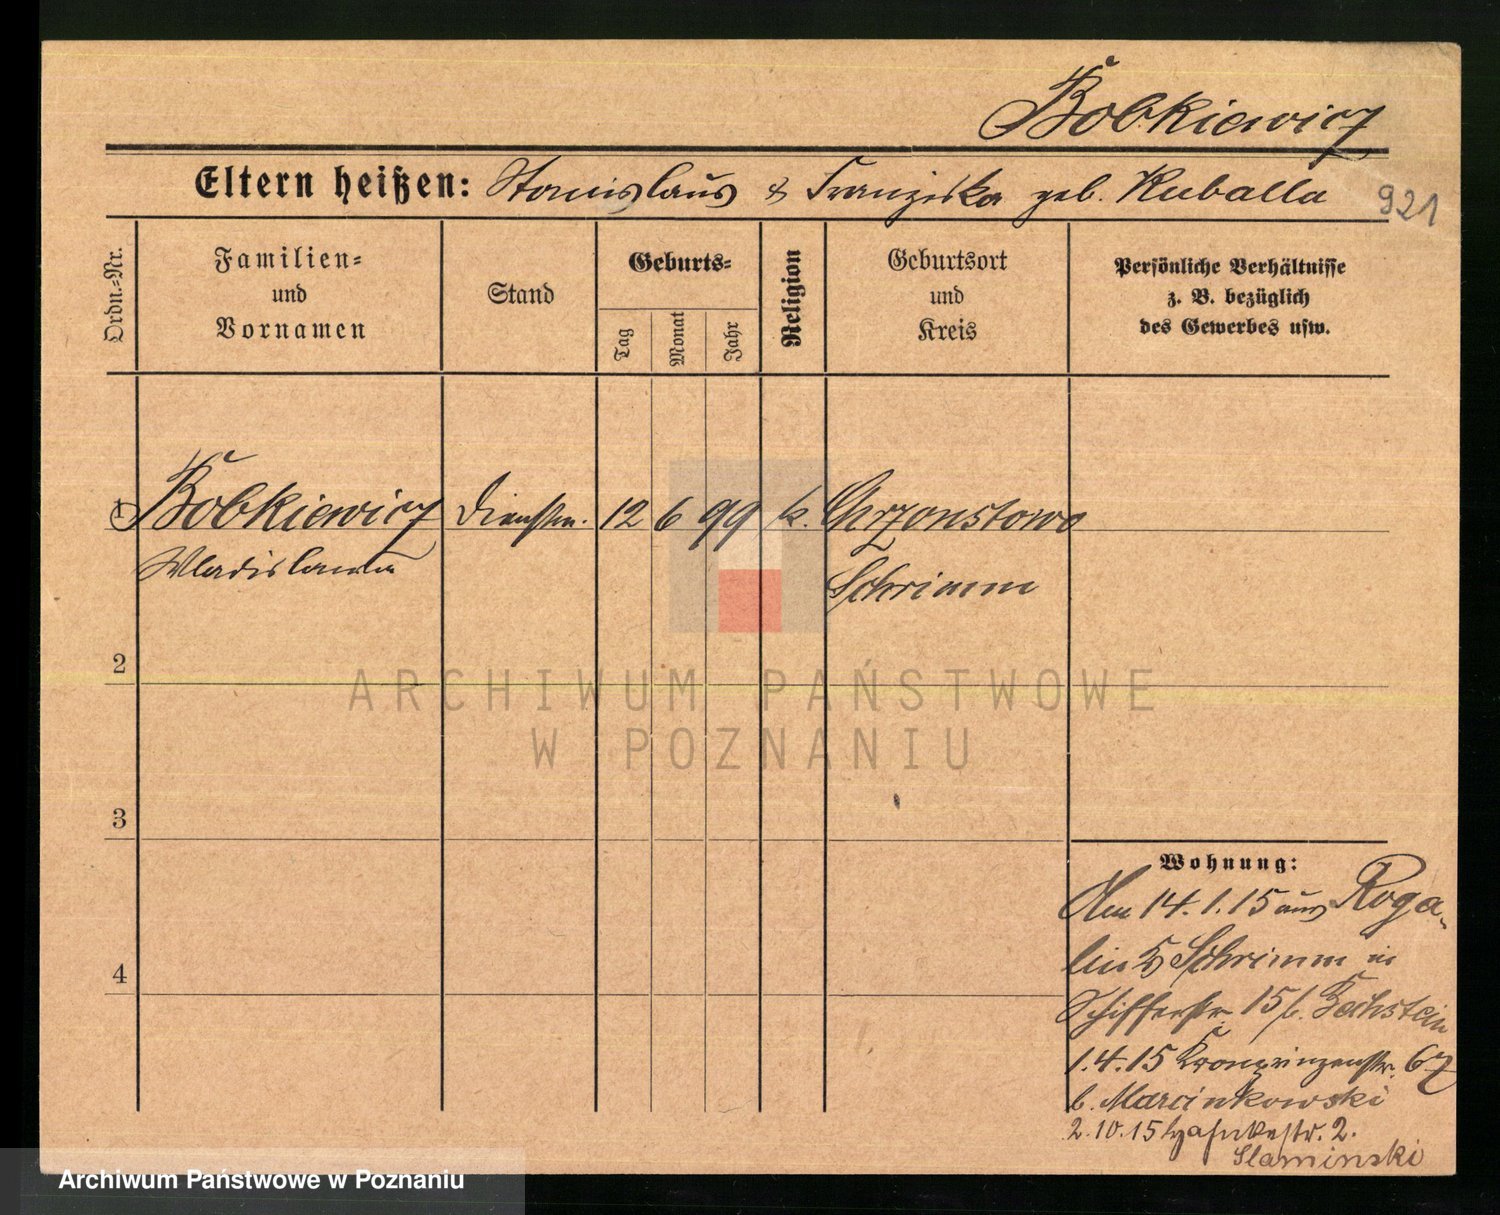 Bobkiewicz
Eltern heißen: Stanislaus & Franziska geb. Kuballa
921
Ordn.-Nr.
Familien- und Vornamen
Stand
Geburts-
Tag
Monat
Jahr
Religion
Geburtsort und Kreis
Persönliche Verhältnisse
z. B. bezüglich
des Gewerbes usw.
1 Bobkiewicz Dienstm. 12 6 99 k. Grzonstowo
Wladislawa Schrimm
2
ARCHIWUM PAŃSTWOWE
W POZNANIU
3
Wohnung:
Am 14.1.15 aus Roga-
lin Schrimm in
4
Schifferstr. 15 b. Bechstein
1.4.15 Kronprinzenstr. 67
b. Marcinkowski
2.10.15 2.
Slaminski
Archiwum Państwowe w Poznaniu